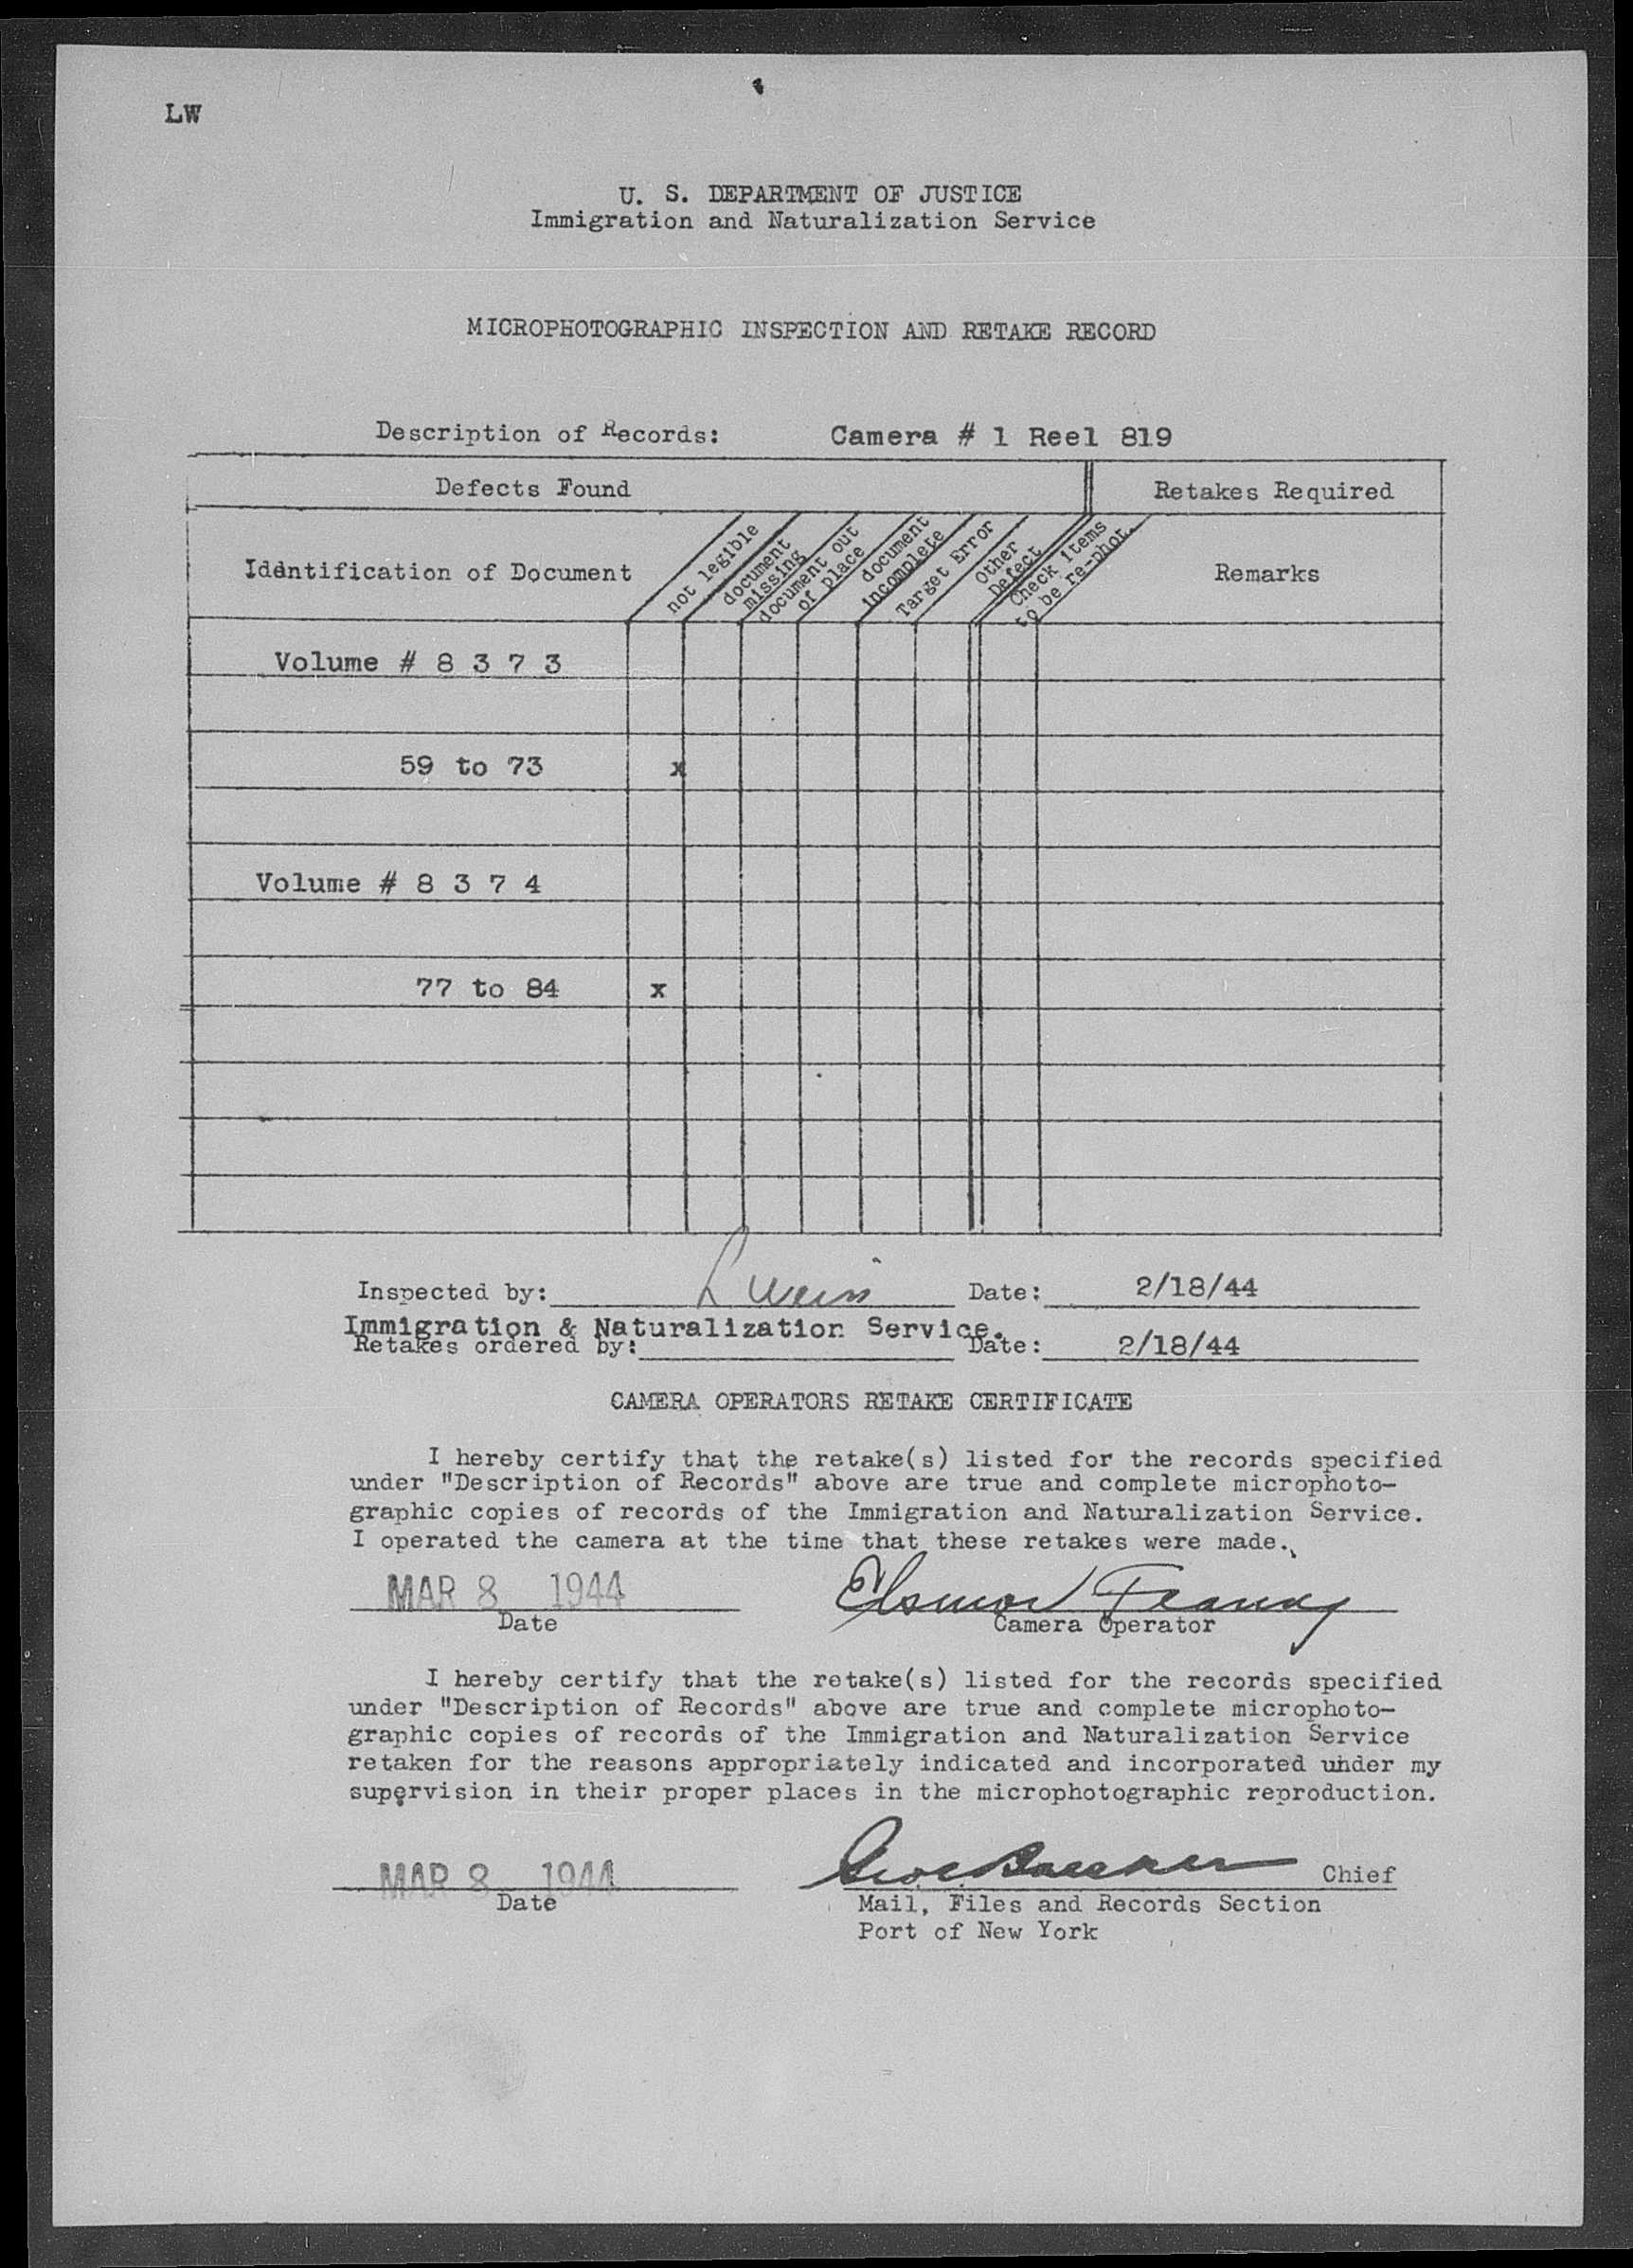 LW
U. S. DEPARTMENT OF JUSTICE
Immigration and Naturalization Service
MICROPHOTOGRAPHIC INSPECTION AND RETAKE RECORD
Description of Records: Camera # 1 Reel 819
Defects Found Retakes Required
Identification of Document
not legible
document missing
document out of place
document incomplete
Target Error
Other Defect
Check items to be re-phot.
Remarks
Volume # 8 3 7 3
59 to 73 x
Volume # 8 3 7 4
77 to 84 x
Inspected by: L Weiss Date: 2/18/44
Immigration & Naturalization Service.
Retakes ordered by: Date: 2/18/44
CAMERA OPERATORS RETAKE CERTIFICATE
I hereby certify that the retake(s) listed for the records specified
under "Description of Records" above are true and complete microphoto-
graphic copies of records of the Immigration and Naturalization Service.
I operated the camera at the time that these retakes were made.
MAR 8 1944
Date Camera Operator
I hereby certify that the retake(s) listed for the records specified
under "Description of Records" above are true and complete microphoto-
graphic copies of records of the Immigration and Naturalization Service
retaken for the reasons appropriately indicated and incorporated under my
supervision in their proper places in the microphotographic reproduction.
MAR 8 1944 Chief
Date Mail, Files and Records Section
Port of New York